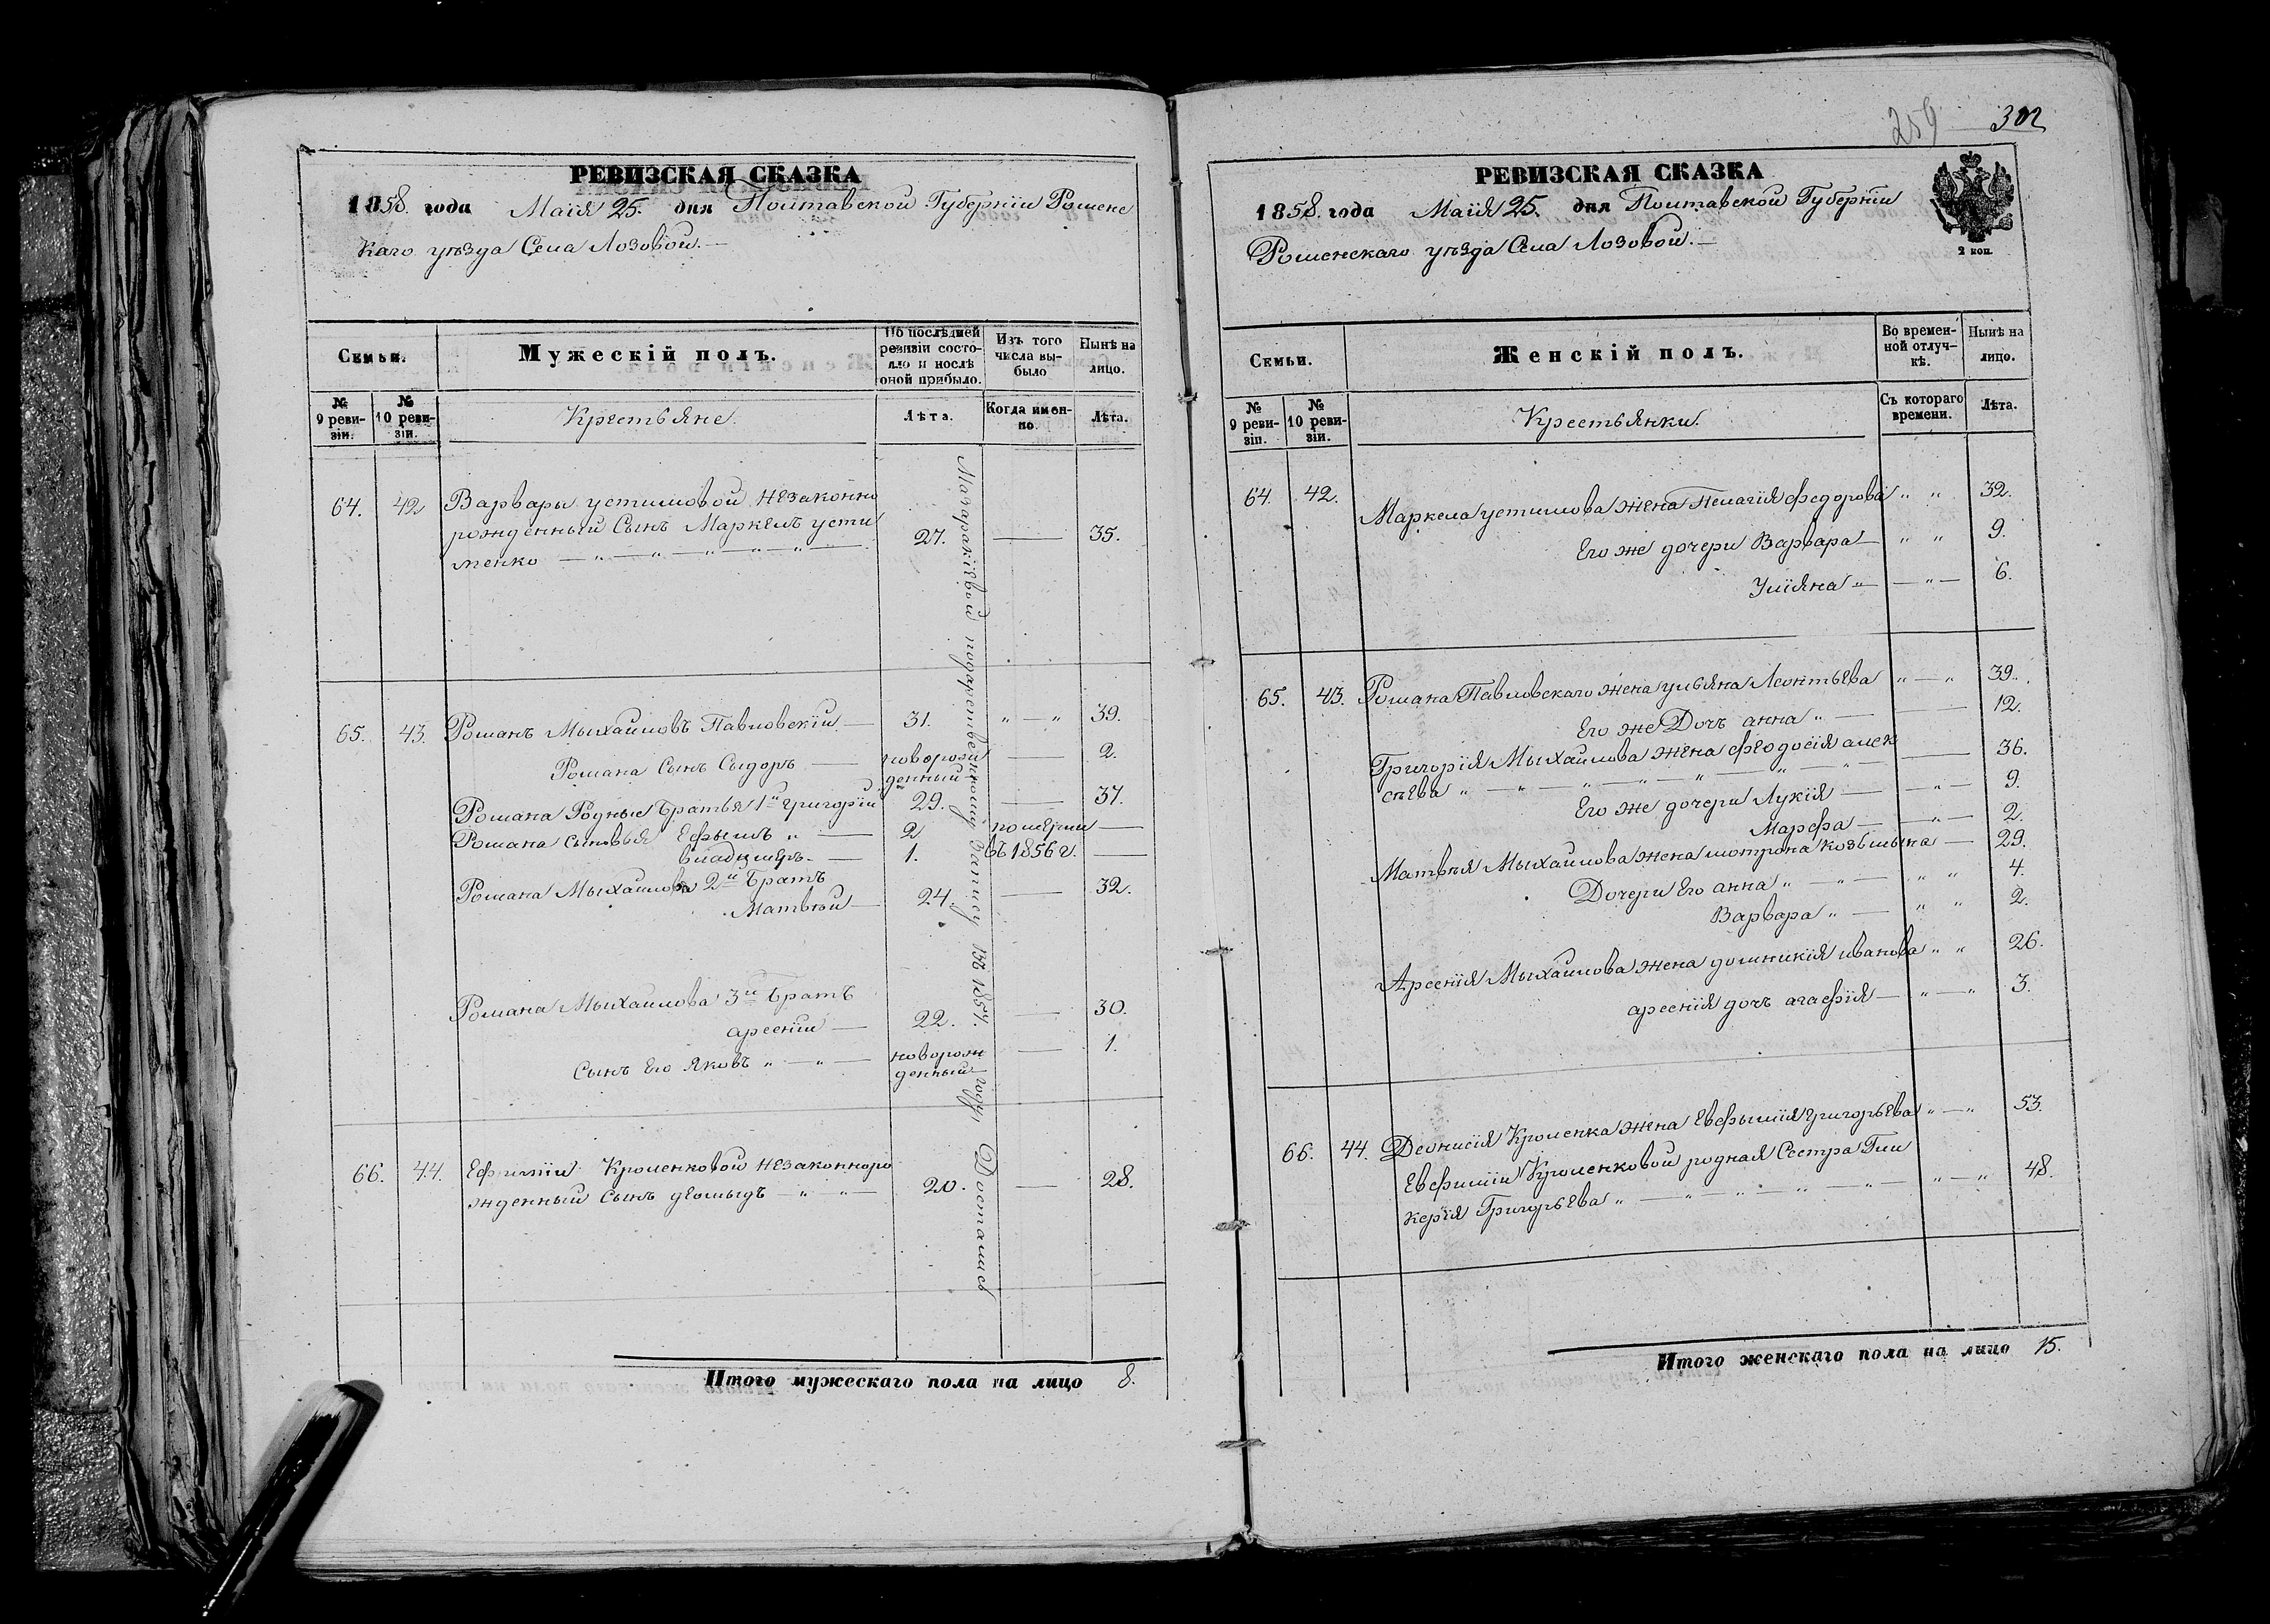 РЕВИЗСКАЯ СКАЗКА
1858. года Маія 25. дня Полтавской Губерніи Роменс
каго уѣзда Села Лозовой.—
Семьи.
Мужескій полъ.
По послѣдней ревизіи состояло и послѣ оной прибыло.
Изъ того числа выбыло
Нынѣ на лицо.
№ 9 ревизіи.
№ 10 ревизіи.
Крестьяне.
Лѣта.
Когда именно.
Лѣта.
64. 42 Варвары устимовой незаконно
рожденный Сынъ Маркелъ усти
менко — 27. — 35.
65. 43. Романъ Мыхайловъ Павловскій — 31. „ — „ 39.
Романа Сынъ Сыдоръ — новорож
денный — 2.
Романа Родные Братья 1й Григорій 29. — 37.
Романа сыновья Ефымъ „ — 2 померли —
владимеръ — 1. въ 1856 г. —
Романа Мыхайлова 2й Братъ
Матвѣй — 24. — 32.
Романа Мыхайлова 3й Братъ
арсеній — 22. — 30.
Сынъ Его Яковъ „ — „ — новорож
денный — 1.
66. 44. Ефиміи Кроленковой незаконноро
жденный Сынъ деомыдъ — „ „ — 20. — 28.
подарственному Запису въ 1857м. году Достались
Итого мужескаго пола на лицо 8.
259 302
РЕВИЗСКАЯ СКАЗКА
1858. года Маія 25. дня Полтавской Губерніи
Роменскаго уѣзда Села Лозовой.—
2 коп.
Семьи.
Женскій полъ.
Во временной отлучкѣ.
Нынѣ на лицо.
№ 9 ревизіи.
№ 10 ревизіи.
Крестьянки.
Съ котораго времени.
Лѣта.
64. 42. Маркела устимова жена Пелагія федорова „ „ 32.
Его же дочери Варвара — „ „ 9.
Уліяна „ — — „ — 6.
65. 43. Романа Павловскаго жена ульяна Леонтьева „ — „ 39.
Его же Дочъ анна „ — — 12.
Григорія Мыхайлова жена феодосія алек
сѣева „ — „ — „ — „ — „ — „ — 36.
Его же дочери Лукія — — „ — 9.
Марфа — — „ — 2.
Матвѣя Мыхайлова жена мотрона козьмына — 29.
Дочери Его анна „ — „ — „ „ 4.
Варвара „ — „ „ 2.
Арсенія Мыхайлова жена домникія иванова „ „ 26.
арсенія дочъ агафія — „ — „ 3.
66. 44. Деонисія Кроленка жена Евфымія григорьева „ — „ 53.
Евфиміи Кроленковой родная Сестра Гли
керія Григорьева „ — „ — „ — „ — „ — „ — „ 48.
Итого женскаго пола на лицо 15.